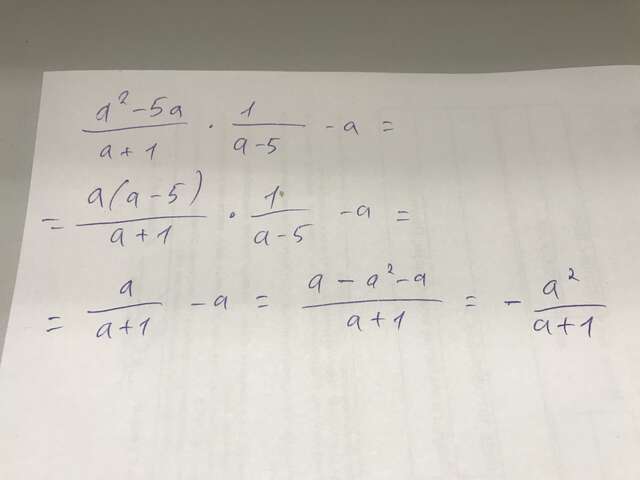 a² - 5a / a + 1 · 1 / a - 5 - a =
= a(a - 5) / a + 1 · 1 / a - 5 - a =
= a / a + 1 - a = a - a² - a / a + 1 = - a² / a + 1